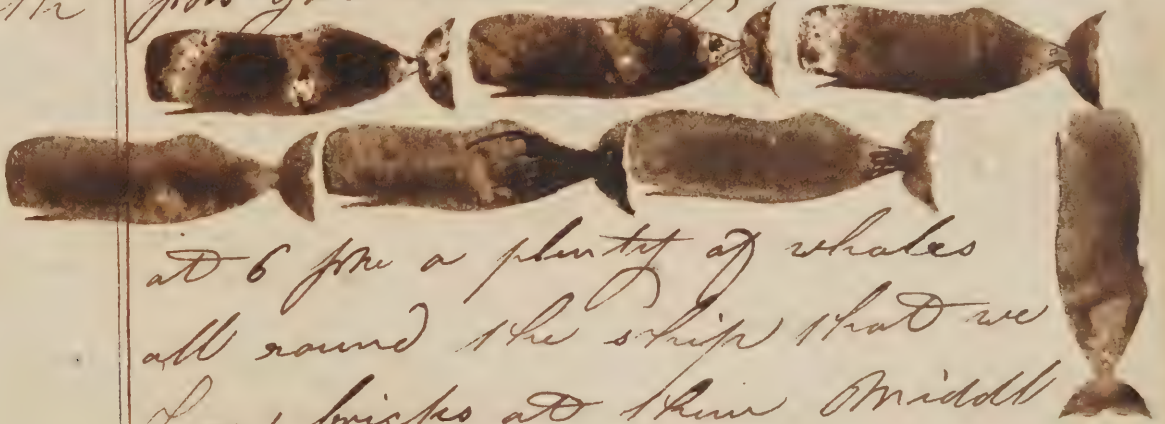 at 6 PM a plenty of whales
all round the ship that we
bricks at thim Middll